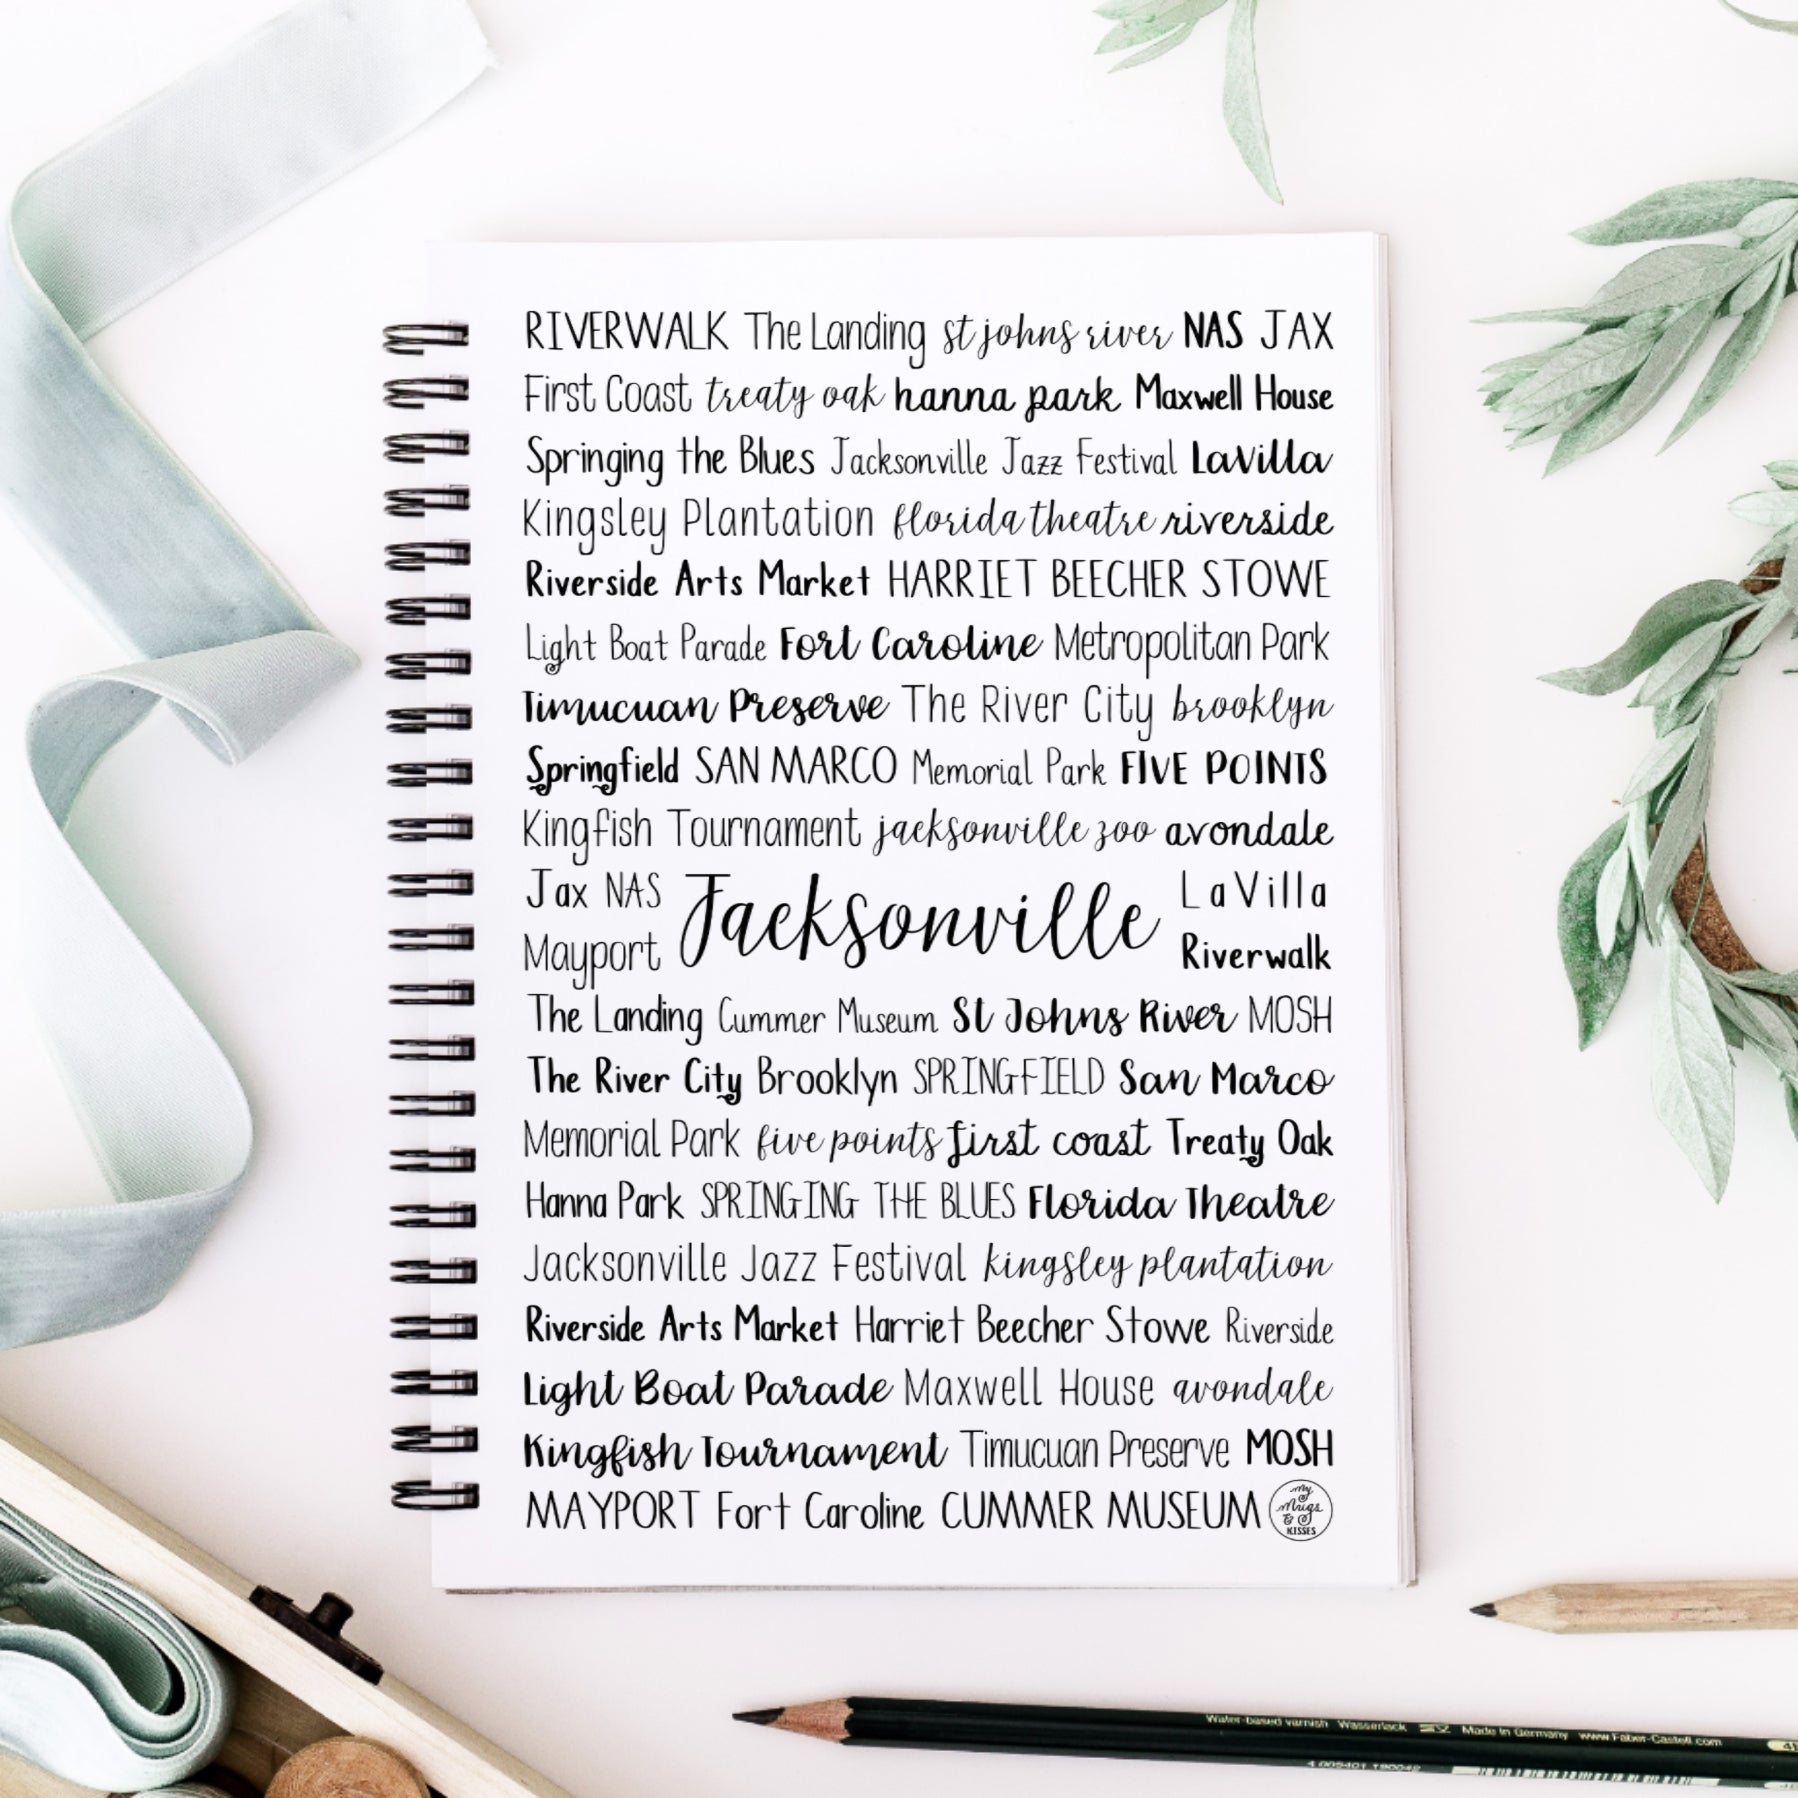 RIVERWALK The Landing st johns river NAS JAX
First Coast treaty oak hanna park Maxwell House
Springing the Blues Jacksonville Jazz Festival LaVilla
Kingsley Plantation florida theatre riverside
Riverside Arts Market HARRIET BEECHER STOWE
Light Boat Parade Fort Caroline Metropolitan Park
Timucuan Preserve The River City brooklyn
Springfield SAN MARCO Memorial Park FIVE POINTS
Kingfish Tournament jacksonville zoo avondale
Jax NAS
Mayport
Jacksonville
LaVilla
Riverwalk
The Landing Cummer Museum St Johns River MOSH
The River City Brooklyn SPRINGFIELD San Marco
Memorial Park five points first coast Treaty Oak
Hanna Park SPRINGING THE BLUES Florida Theatre
Jacksonville Jazz Festival kingsley plantation
Riverside Arts Market Harriet Beecher Stowe Riverside
Light Boat Parade Maxwell House avondale
Kingfish Tournament Timucuan Preserve MOSH
MAYPORT Fort Caroline CUMMER MUSEUM
My
Mugs
&
KISSES
Water-based varnish Wasserlack Made in Germany www.Faber-Castell.com